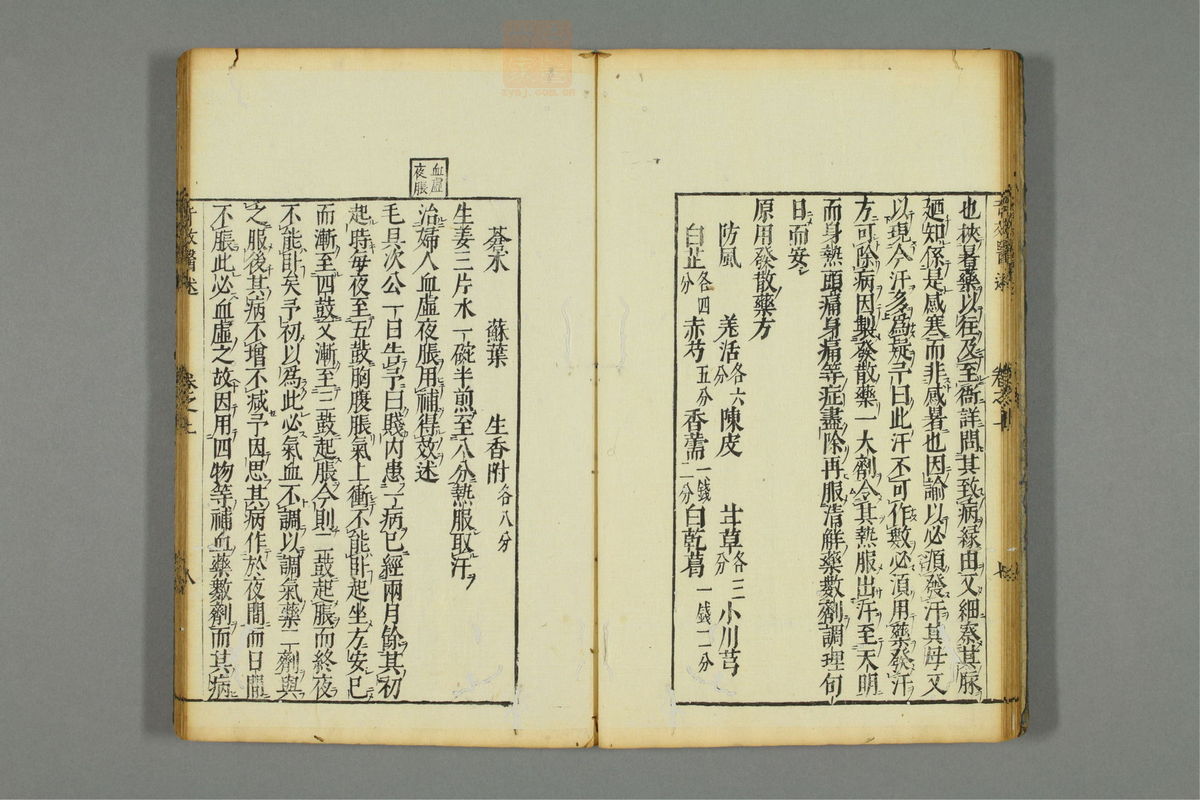 也挾暑藥以往及至衙詳問其致病緣由又細察其脉
廼知係是感寒而非感暑也因諭以必須發汗其母又
以現今汗多為疑予曰此汗不可作數必須用藥發汗
方可除病因製發散藥一大劑令其熱服出汗至天明
而身熱頭痛身痛等症盡除再服清解藥數劑調理旬
日而安
原用發散藥方
防風 羌活各六分 陳皮 甘草各三分 小川芎
白芷各四分 赤芍五分 香薷一錢二分 白乾葛一錢二分
蒼朮 蘇葉 生香附各八分
生姜三片水一碗半煎至八分熱服取汗
血虛夜脹
治婦人血虛夜脹用補得效述
毛具次公一日告予曰賤內患一病已經兩月餘其初
起時每夜至五鼓胸腹脹氣上衝不能卧起坐方安已
而漸至四鼓又漸至三鼓起脹今則二鼓起脹而終夜
不能卧矣予初以為此必氣血不調以調氣藥二劑與
之服後其病不增不减予因思其病作於夜間而日間
不脹此必血虛之故因用四物等補血藥數劑而其病
奇效醫述
卷之一
八
七
zysj.com.cn